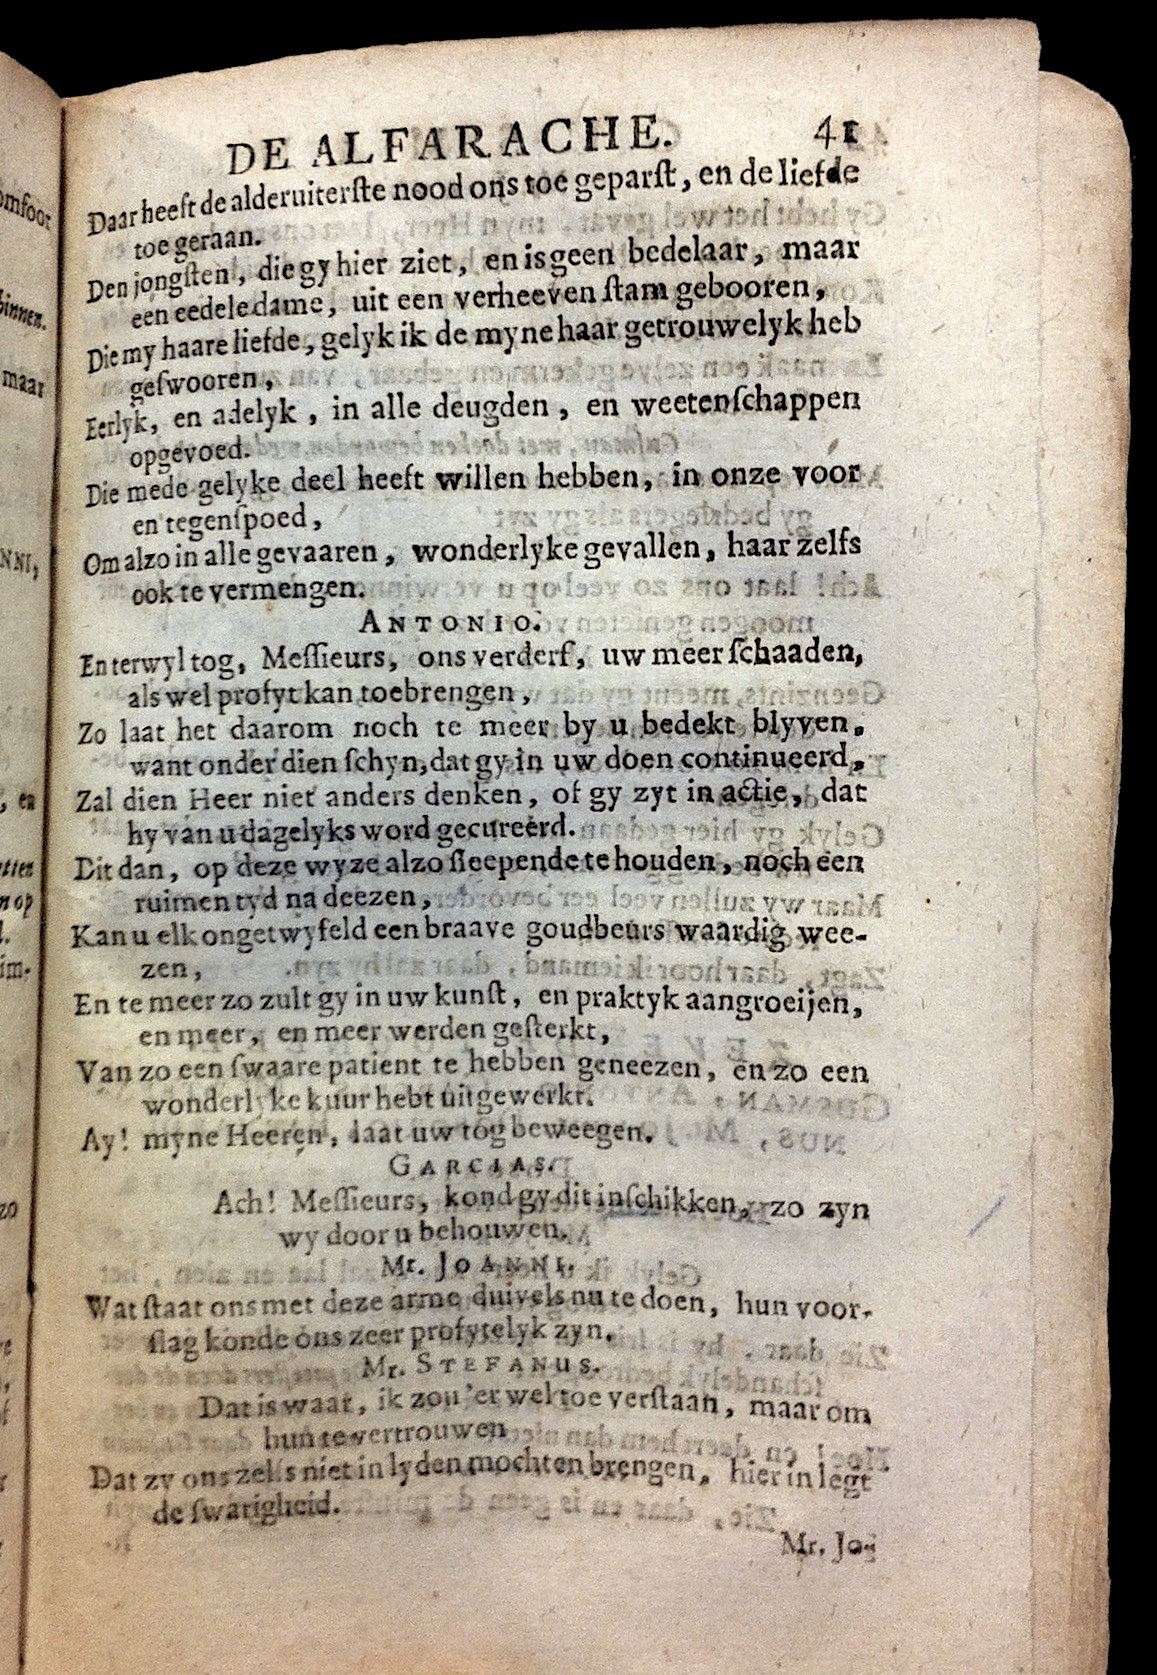 DE ALFARACHE. 41
Daar heeft de alderuiterste nood ons toe geparst, en de liefde
toe geraan.
Den jongsten, die gy hier ziet, en is geen bedelaar, maar
een eedele dame, uit een verheeven stam gebooren,
Die my haare liefde, gelyk ik de myne haar getrouwelyk heb
geswooren,
Eerlyk, en adelyk, in alle deugden, en weetenschappen
opgevoed.
Die mede gelyke deel heeft willen hebben, in onze voor
en tegenspoed,
Om alzo in alle gevaaren, wonderlyke gevallen, haar zelfs
ook te vermengen.
ANTONIO.
En terwyl tog, Messieurs, ons verderf, uw meer schaaden,
als wel profyt kan toebrengen,
Zo laat het daarom noch te meer by u bedekt blyven,
want onder dien schyn, dat gy in uw doen continueerd,
Zal dien Heer niet anders denken, of gy zyt in actie, dat
hy van u dagelyks word gecureerd.
Dit dan, op deze wyze alzo sleepende te houden, noch een
ruimen tyd na deezen,
Kan u elk ongetwyfeld een braave goudbeurs waardig wee-
zen,
En te meer zo zult gy in uw kunst, en praktyk aangroeijen,
en meer, en meer werden gesterkt,
Van zo een swaare patient te hebben geneezen, en zo een
wonderlyke kuur hebt uitgewerkt.
Ay! myne Heeren, laat uw tog beweegen.
GARCIAS.
Ach! Messieurs, kond gy dit inschikken, zo zyn
wy door u behouwen.
Mr. JOANNI.
Wat staat ons met deze arme duivels nu te doen, hun voor-
slag konde ons zeer profytelyk zyn.
Mr. STEFANUS.
Dat is waar, ik zou 'er wel toe verstaan, maar om
hun te vertrouwen
Dat zy ons zelfs niet in lyden mochten brengen, hier in legt
de swarigheid.
Mr. Jo-